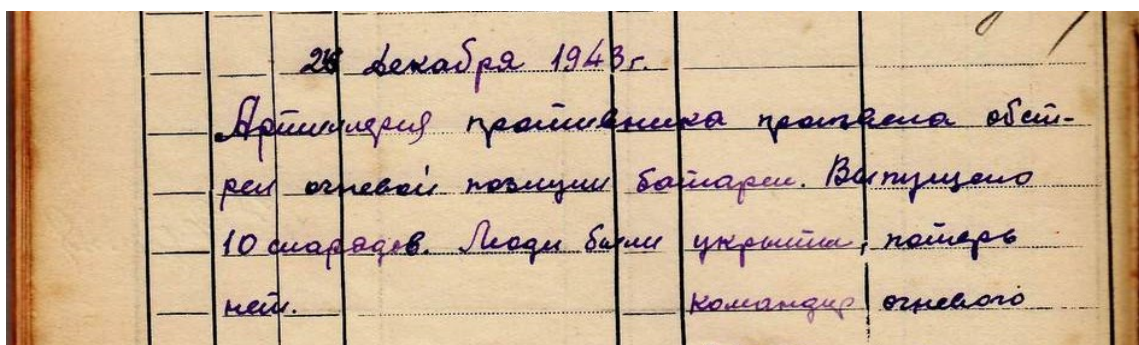 декабря 1943 г.
Артиллерия противника произвела обст-
рел огневой позиции батареи. Выпущено
10 снарядов. Люди были укрыты, потерь
нет. Командир огневого